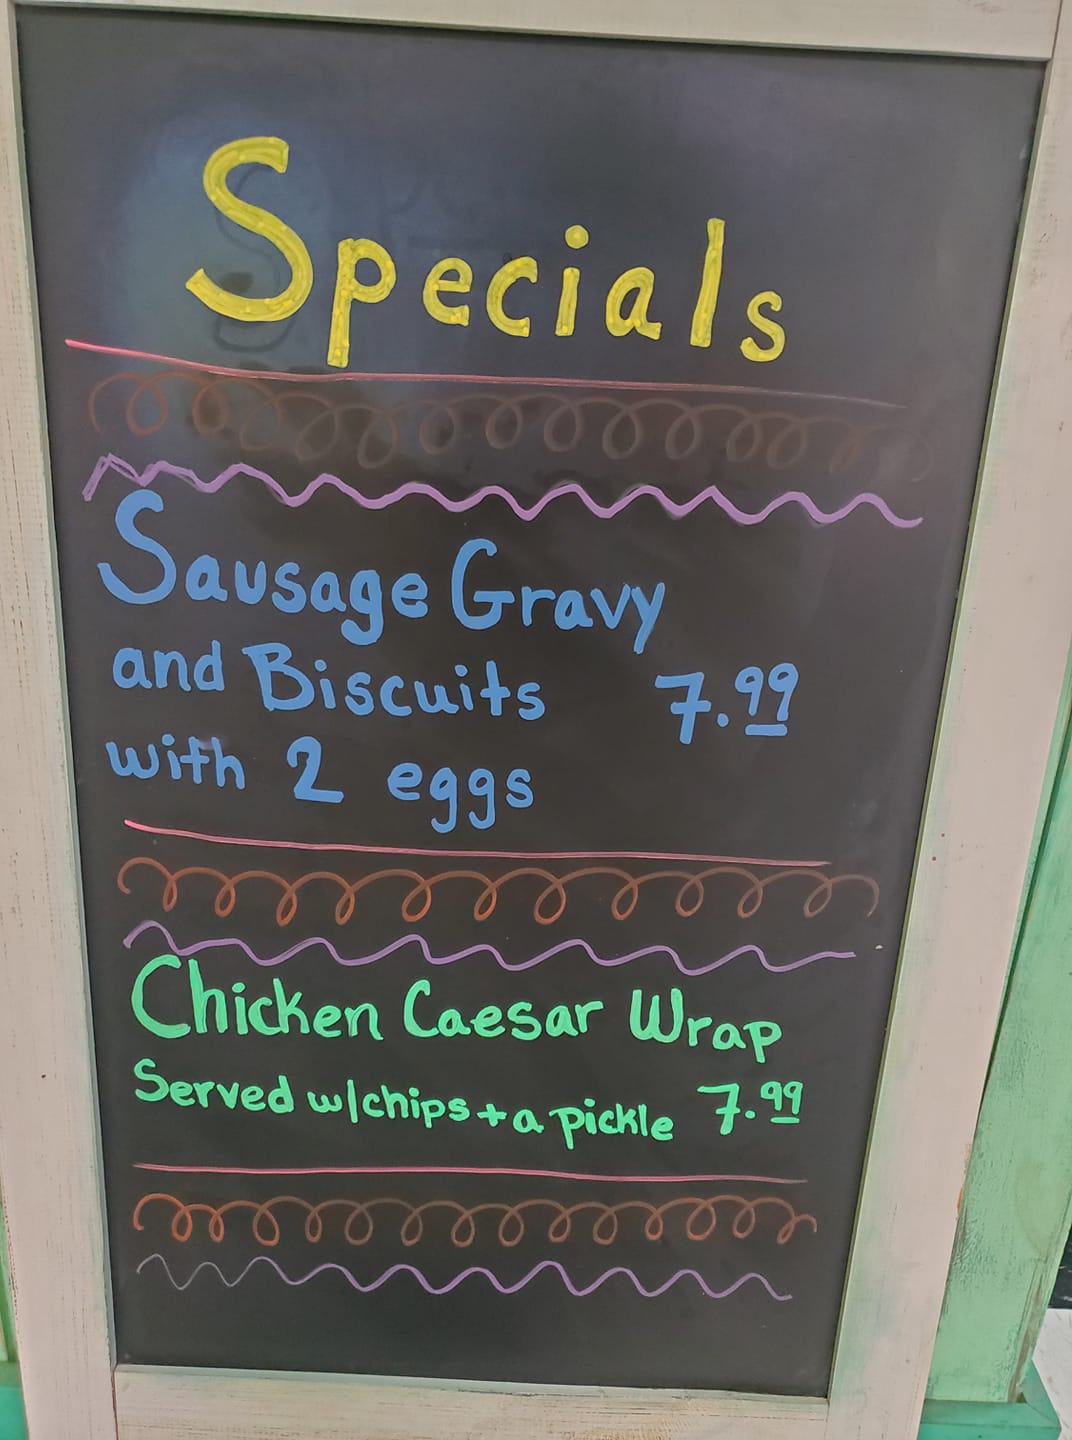 Specials
Sausage Gravy
and Biscuits 7.99
with 2 eggs
Chicken Caesar Wrap
Served w/chips + a pickle 7.99